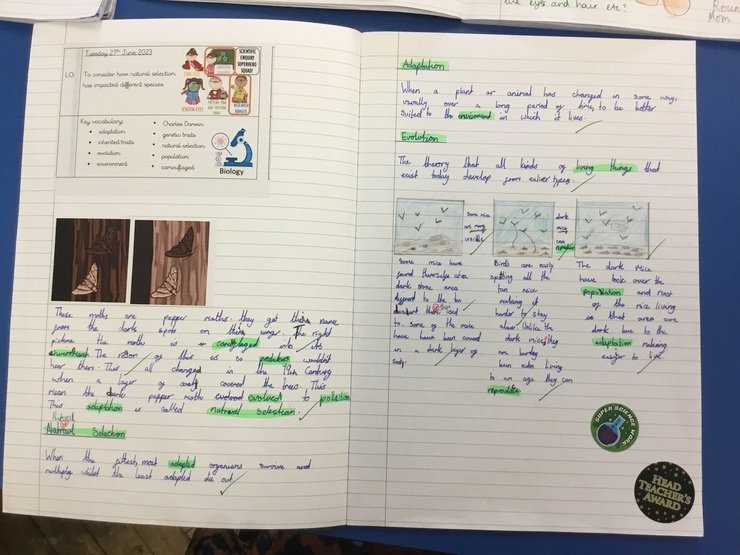 are eyes and hair etc?
Mom
Tuesday 27th June 2023
LO:
To consider how natural selection
has impacted different species
SCIENTIFIC
ENQUIRY
SUPERHERO
SQUAD!
Key vocabulary:
• adaptation
• inherited traits
• evolution
• environment
• Charles Darwin
• genetic traits
• natural selection
• population
• camouflaged
Biology
These moths are pepper moths they got their name
from the dark spots on there wings. The right
picture the moth is so camoflaged into its
enviroment The reson of this is so preditors wouldn't
hear them. This all changed in the 19th Century
when a layer of sooty covered the trees. This
mean the dark pepper moth evolved to pollution
This adaptation is called natraul selection.
Natural
Natraul Selection
When the fittest, most adapted organisms survive and
multiply whilst the least adapted die out.
Adaptation
When a plant or animal has changed in some way,
usually over a long period of time, to be better
suited to the enviroment in which it lives.
Evolution
The theory that all kinds of living things that
exist today develop from ealier types.
Some mice
are more
visible
dark
mice
can
reproduce
Some mice have
found themselves in a
dark some area
to the tan
desert
to. Some of the mice
have have been covered
in a dark layer of
Birds are easily
spotting all the
tan mice
making it
harder to stay
alive. Unlike the
dark mice they
are
been eaten living
to an age they can
reproduce
The dark mice
have took over the
population and most
of the mice living
in that area are
dark due to the
adaptation making
easier to live.
SUPER SCIENCE WORK
HEAD
TEACHER'S
AWARD